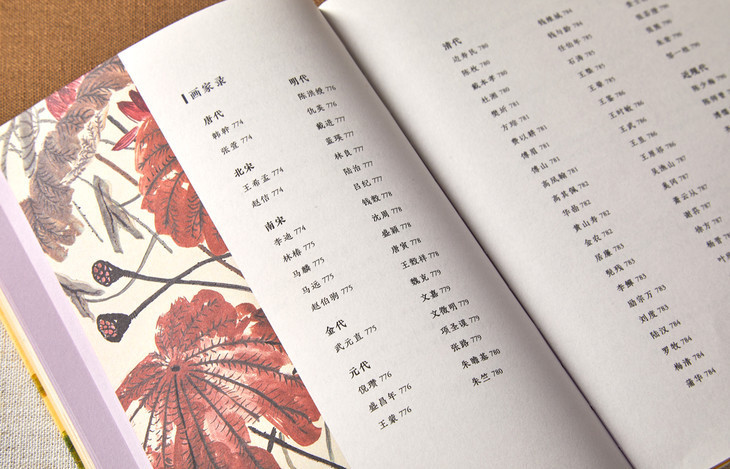 画家录
唐代
韩幹 774
张萱 774
北宋
王希孟 774
赵佶 774
南宋
李迪 774
林椿 775
马麟 775
马远 775
赵伯驹 775
金代
武元直 775
元代
倪瓒 776
盛昌年 776
王蒙 776
明代
陈洪绶 776
仇英 776
戴进 777
蓝瑛 777
林良 777
陆治 777
吕纪 777
钱榖 777
沈周 778
盛茂 778
唐寅 778
王榖祥 778
魏克 779
文嘉 779
文徵明 779
项圣谟 779
张路 779
朱瞻基 780
朱竺 780
清代
边寿民 780
陈枚 780
戴本孝 780
杜洲 780
樊圻 781
方琮 781
费以耕 781
傅眉 781
傅山 781
高凤翰 781
高其佩 782
华喦 782
黄山寿 782
金农 782
居廉 782
髡残 783
李鱓 783
励宗万 783
刘度 783
陆汉 783
罗牧 784
梅清 784
蒲华 784
钱维城 784
钱与龄 784
任伯年 785
石涛 785
王槩 785
王翚 785
王鉴 785
王时敏 786
王武 786
王昱 786
王原祁 786
吴渔山 786
奚冈 787
萧云从 787
谢荪 787
徐方 787
杨晋
邹一桂
近现代